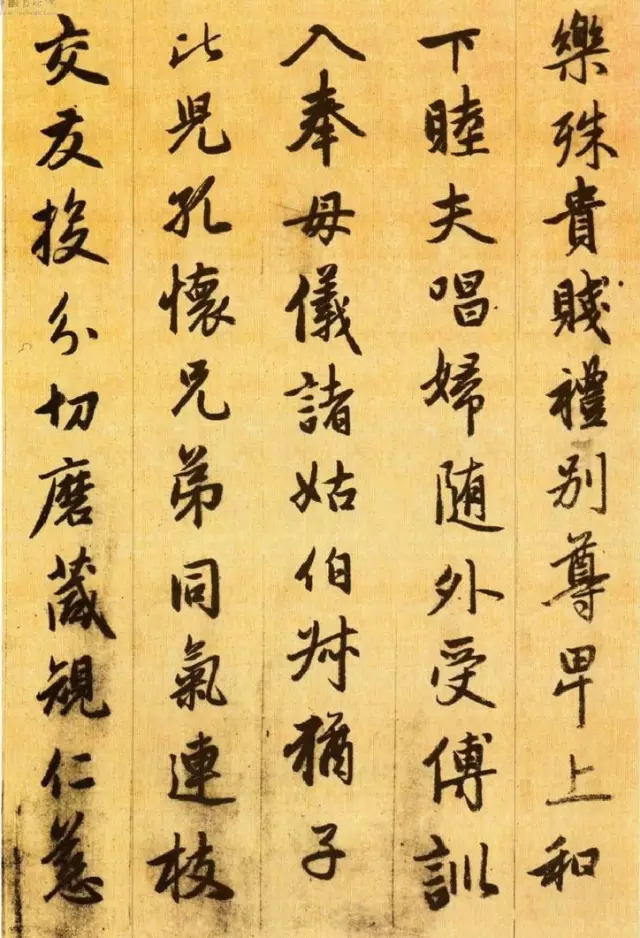 樂殊貴賤禮别尊卑上和
下睦夫唱婦随外受傅訓
入奉母儀諸姑伯叔猶子
比兒孔懷兄弟同氣連枝
交友投分切磨箴規仁慈